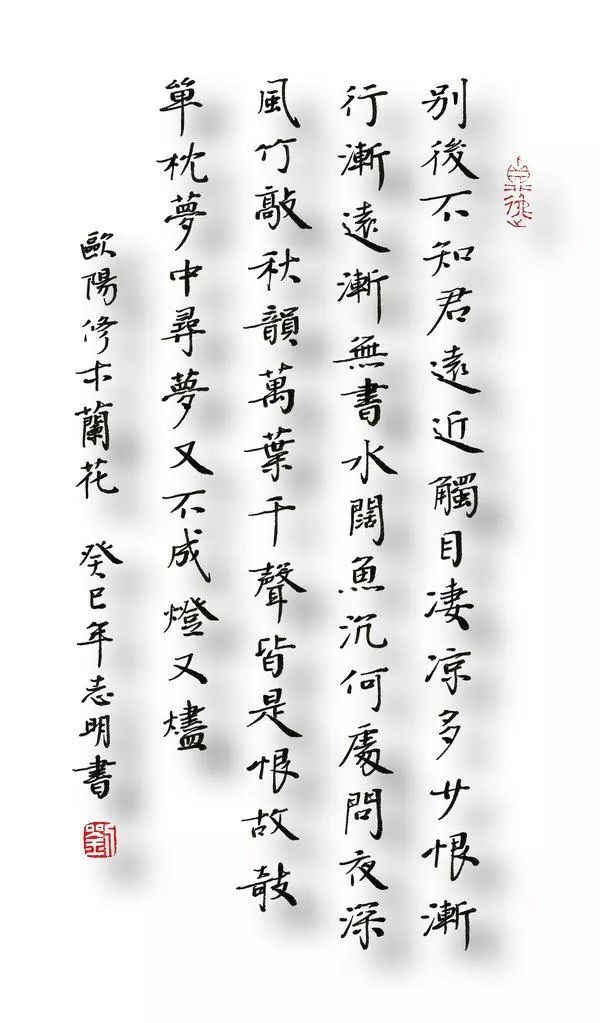 別後不知君遠近觸目凄涼多少恨漸
行漸遠漸無書水闊魚沉何處問夜深
風竹敲秋韻萬葉千聲皆是恨故攲
單枕夢中尋夢又不成燈又燼
歐陽修木蘭花 癸巳年志明書
劉